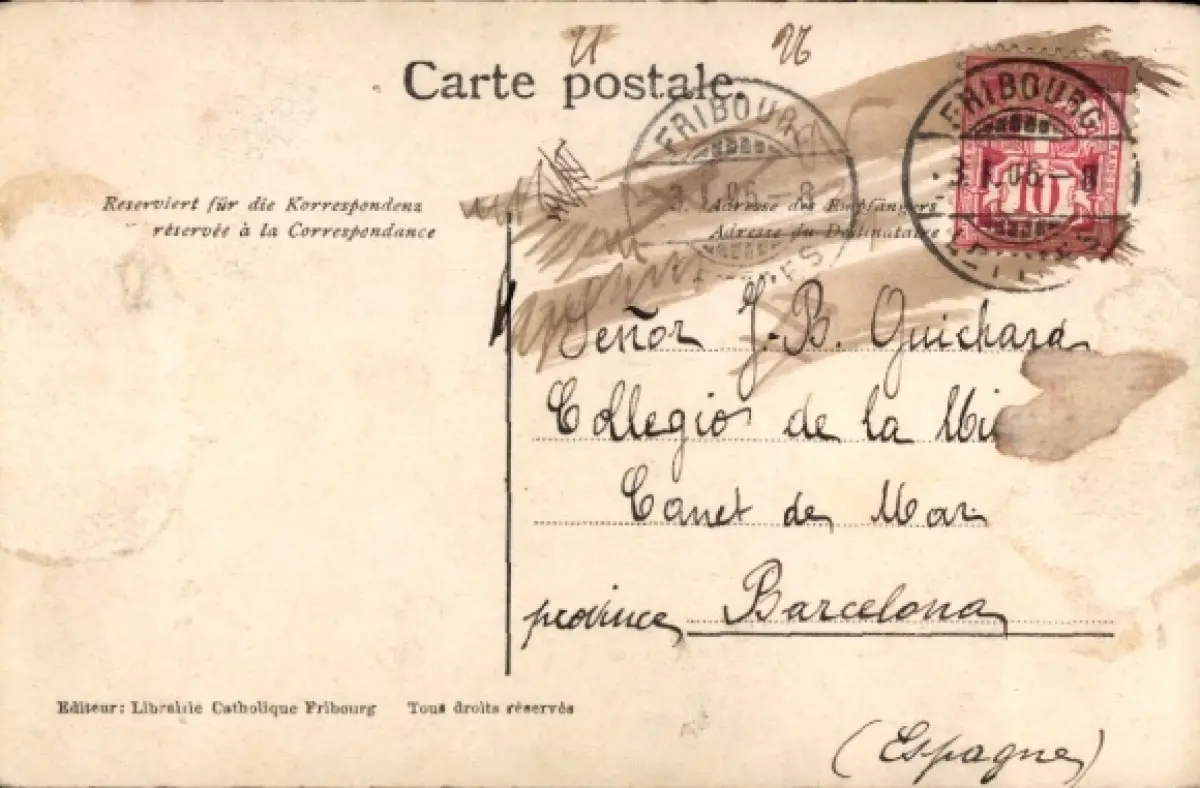 Carte postale.
FRIBOURG
3.I.06.-8
FRIBOURG
3.I.06.-8
10
Reserviert für die Korrespondenz
réservée à la Correspondance
Adresse des Empfängers
Adresse du Destinataire
Señor J.-B. Guichard
Collegio de la
Canet de Mar
province Barcelona
Editeur: Librairie Catholique Fribourg Tous droits réservés
(Espagne)